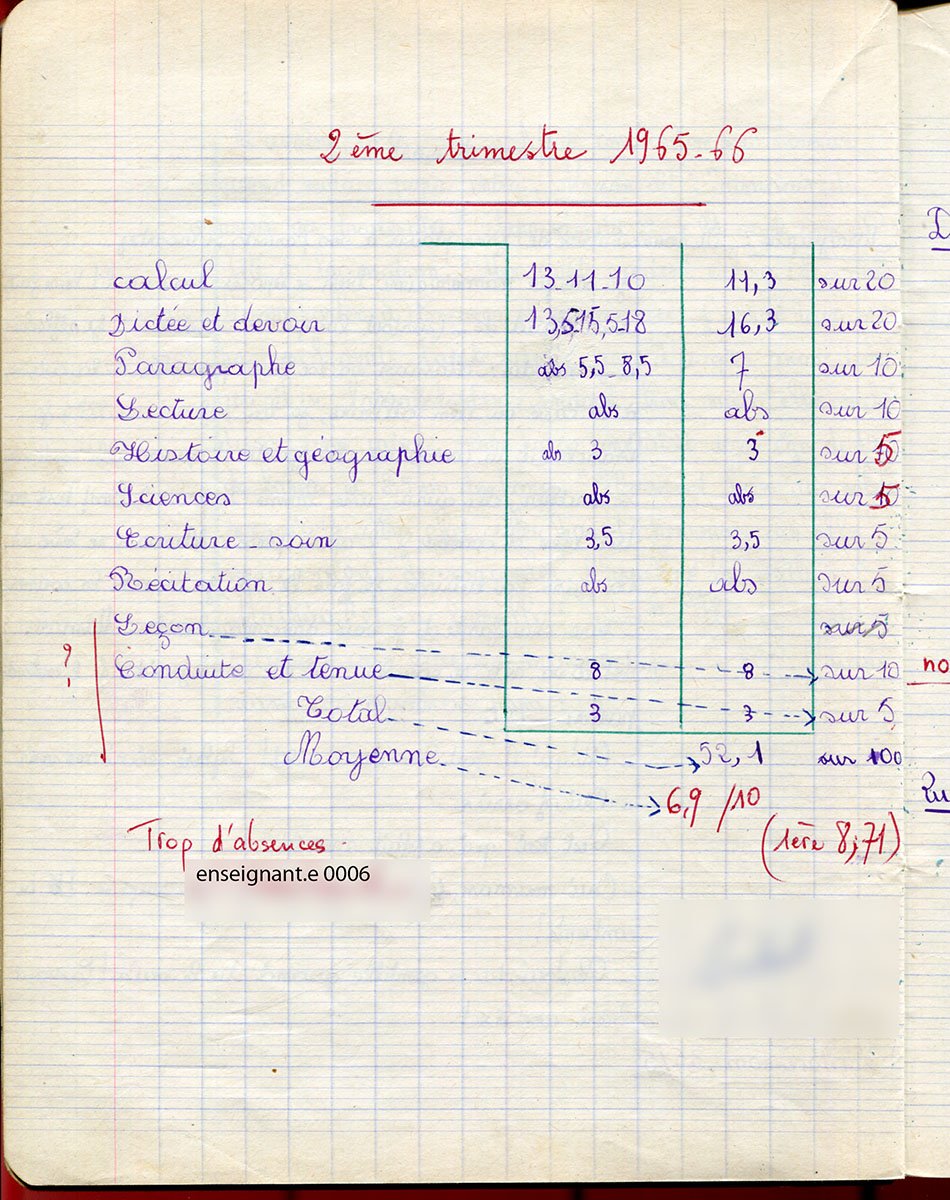 2ème trimestre 1965-66
calcul 13-11-10 11,3 sur 20
Dictée et devoir 13,5-15,5-18 16,3 sur 20
Paragraphe abs 5,5-8,5 7 sur 10
Lecture abs abs sur 10
Histoire et géographie abs 3 3 sur 5
Sciences abs abs sur 5
Ecriture - soin 3,5 3,5 sur 5
Récitation abs abs sur 5
Leçon sur 5
? Conduite et tenue 8 8 sur 10 no
Total 3 3 sur 5
Moyenne 52,1 sur 100
6,9 /10
(1ère 8,71)
Trop d'absences.
enseignant.e 0006